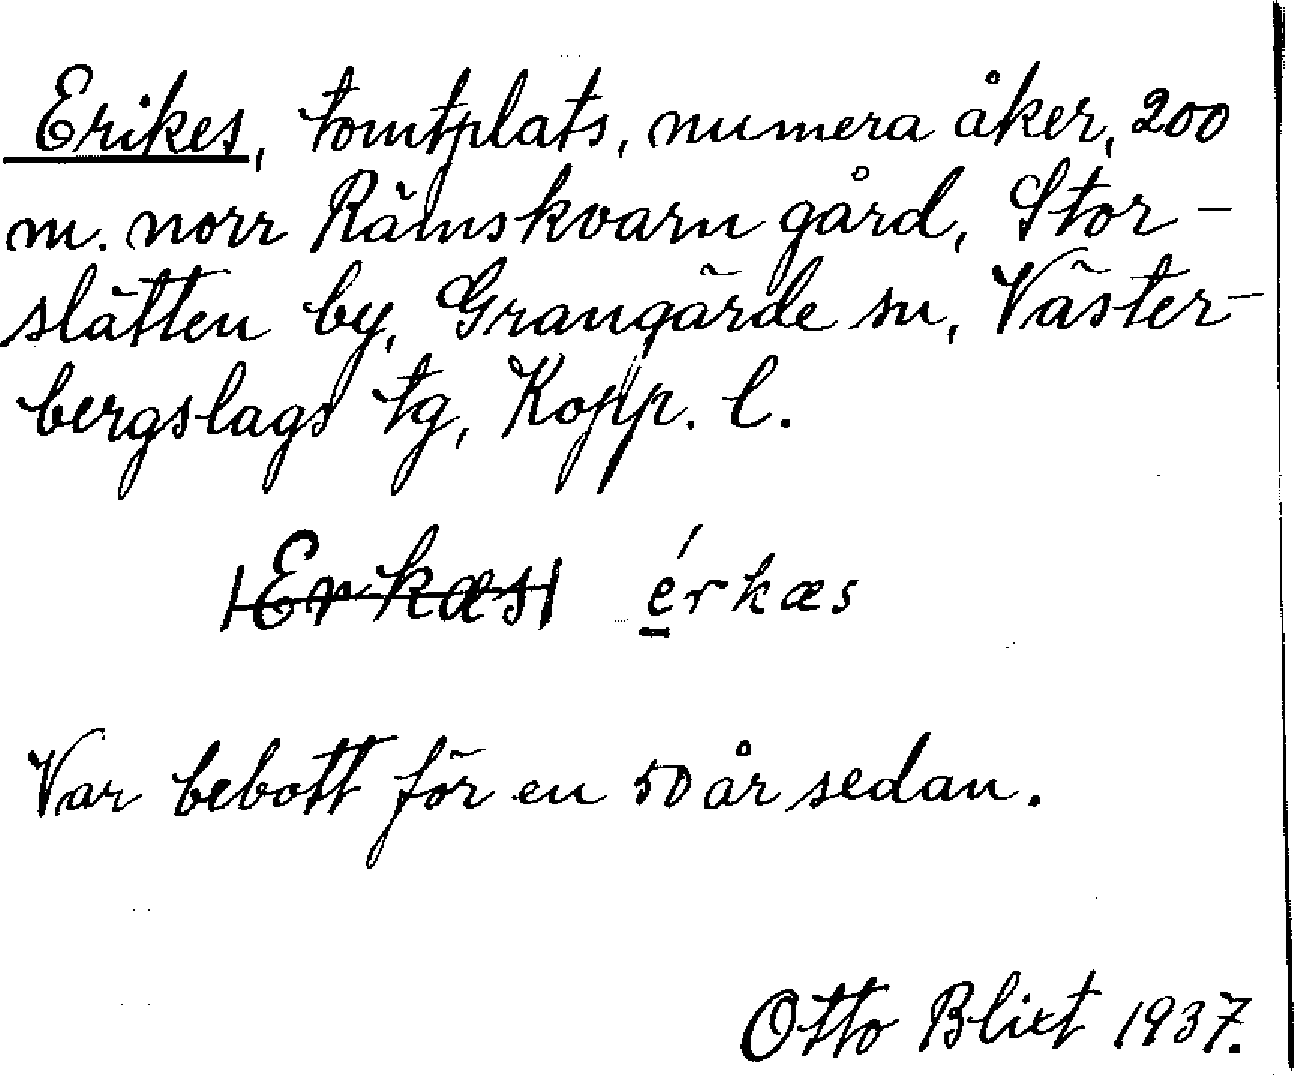 Erikes, tomtplats, numera åker, 200
m. norr Rämskvarn gård, Stor-
slätten by, Grangärde sn, Väster-
bergslags tg, Kopp. l.
|Erkæs| érkæs
Var bebott för en 50 år sedan.
Otto Blixt 1937.